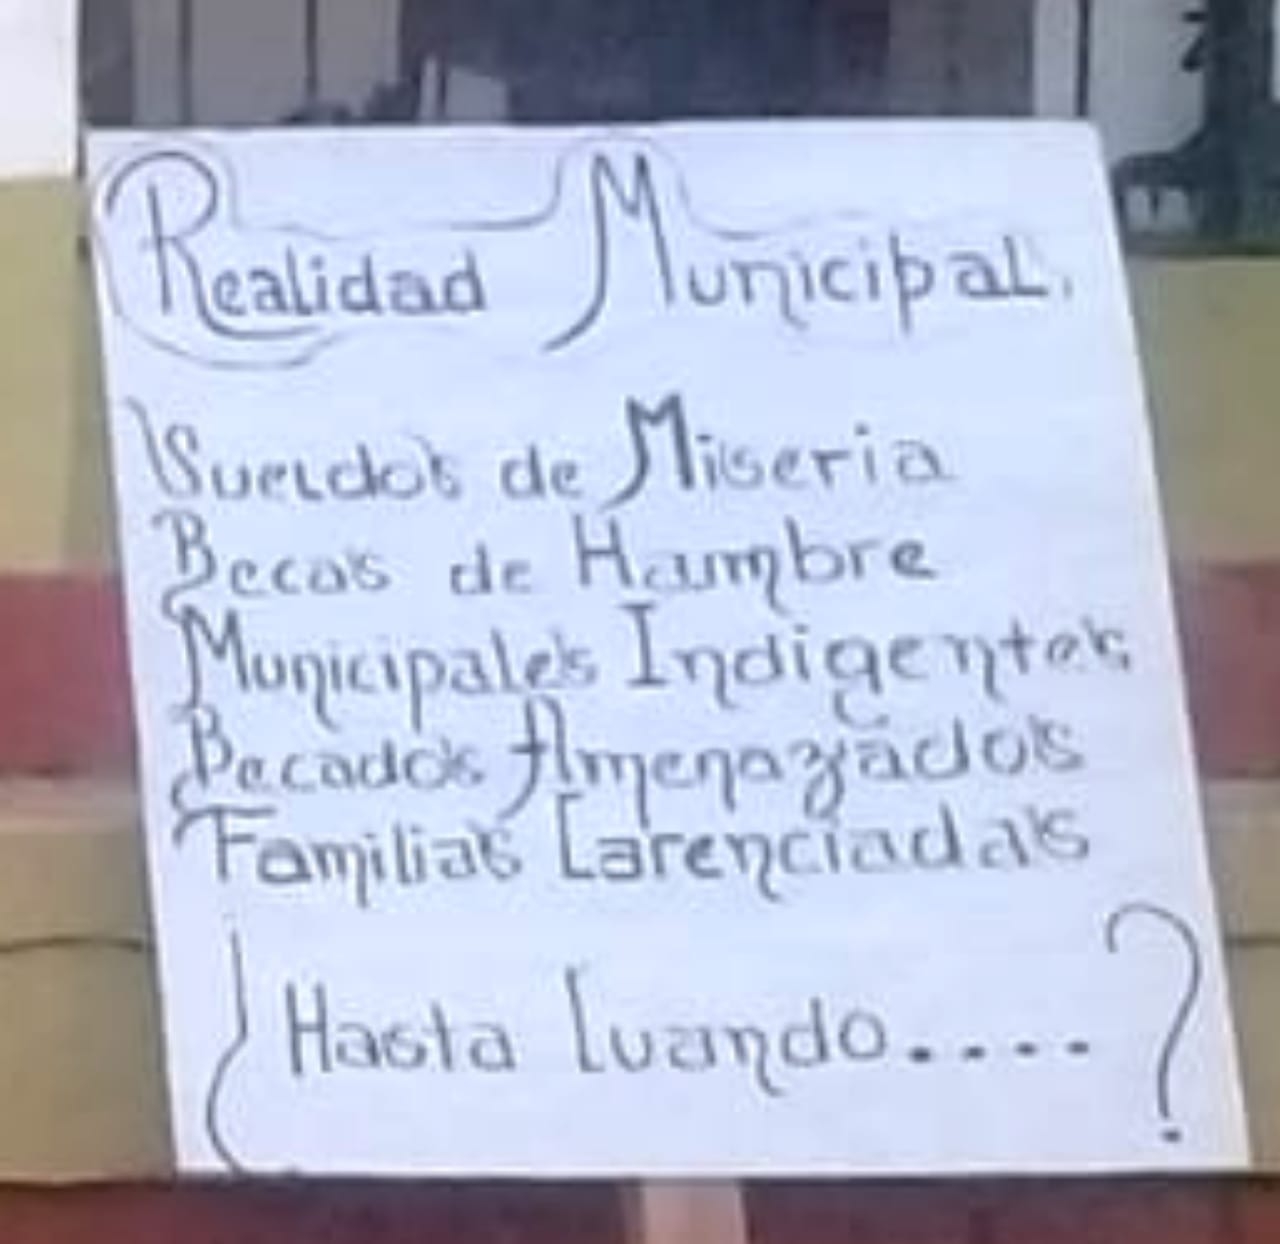 Realidad Municipal.
Sueldos de Miseria
Becas de Hambre
Municipales Indigentes
Becados Amenazados
Familias Carenciadas
¿Hasta Cuando....?